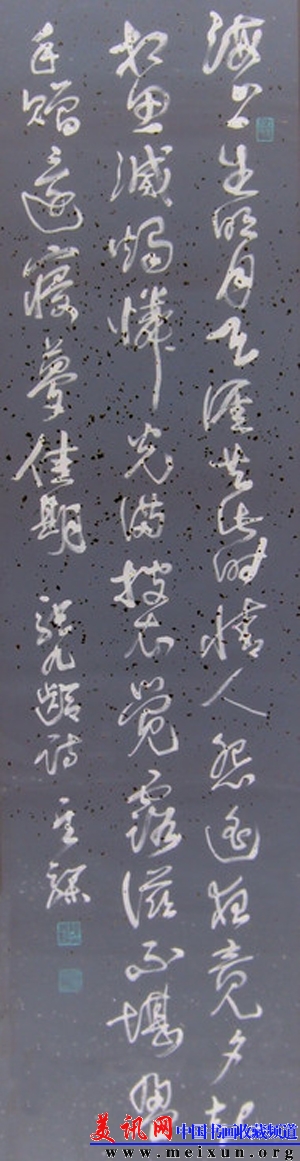 海上生明月天涯共此時情人怨遥夜竟夕起
相思滅燭憐光滿披衣覺露滋不堪盈
手贈還寢夢佳期 張九齡詩
美讯网 中国书画收藏频道
www.meixun.org